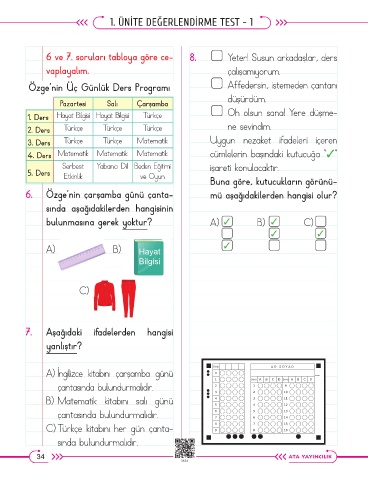 1. ÜNİTE DEĞERLENDİRME TEST - 1
6 ve 7. soruları tabloya göre ce-
vaplayalım.
Özge'nin Üç Günlük Ders Programı
Pazartesi Salı Çarşamba
1. Ders Hayat Bilgisi Hayat Bilgisi Türkçe
2. Ders Türkçe Türkçe Türkçe
3. Ders Türkçe Türkçe Matematik
4. Ders Matematik Matematik Matematik
5. Ders Serbest Etkinlik Yabancı Dil Beden Eğitimi ve Oyun
6. Özge'nin çarşamba günü çanta-
sında aşağıdakilerden hangisinin
bulunmasına gerek yoktur?
A) B) Hayat
Bilgisi
C)
7. Aşağıdaki ifadelerden hangisi
yanlıştır?
A) İngilizce kitabını çarşamba günü
çantasında bulundurmalıdır.
B) Matematik kitabını salı günü
çantasında bulundurmalıdır.
C) Türkçe kitabını her gün çanta-
sında bulundurmalıdır.
8. Yeter! Susun arkadaşlar, ders
çalışamıyorum.
Affedersin, istemeden çantanı
düşürdüm.
Oh olsun sana! Yere düşme-
ne sevindim.
Uygun nezaket ifadeleri içeren
cümlelerin başındaki kutucuğa "✓"
işareti konulacaktır.
Buna göre, kutucukların görünü-
mü aşağıdakilerden hangisi olur?
A) ✓ B) ✓ C)
✓ ✓
✓
AD SOYAD
34
ATA YAYINCILIK